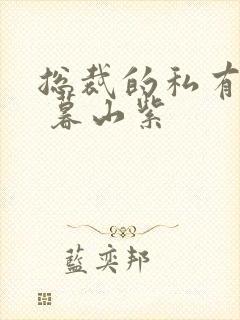 总裁的私有
暮山紫
藍奕邦